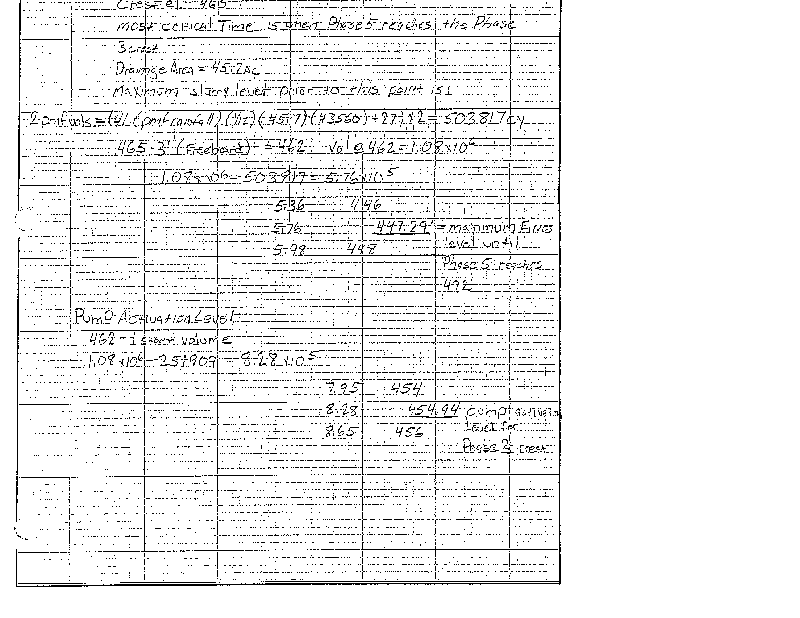 Crest el. 465
most critical Time is when Phase 5 reaches the Phase
3 crest
Drainage Area = 457 ac
Maximum slurry level prior to this point is:
(pmf rainfall) (1/12) (457) (43560) ÷ 27 = 503817 cy
465 - 3' (Freeboard) = 462 Vol @ 462 = 1.08x10⁶
1.08x10⁶ - 503817 = 5.76x10⁵
5.36 446
5.76 447.29' = maximum Fines
5.98 448 level until
Phase 5 reaches
492
Pump Activation Level
462 - 1 storm volume
1.08x10⁶ - 251909 = 8.28x10⁵
7.95 454
8.28 454.94
8.65 456 level for
Phase 2 crest